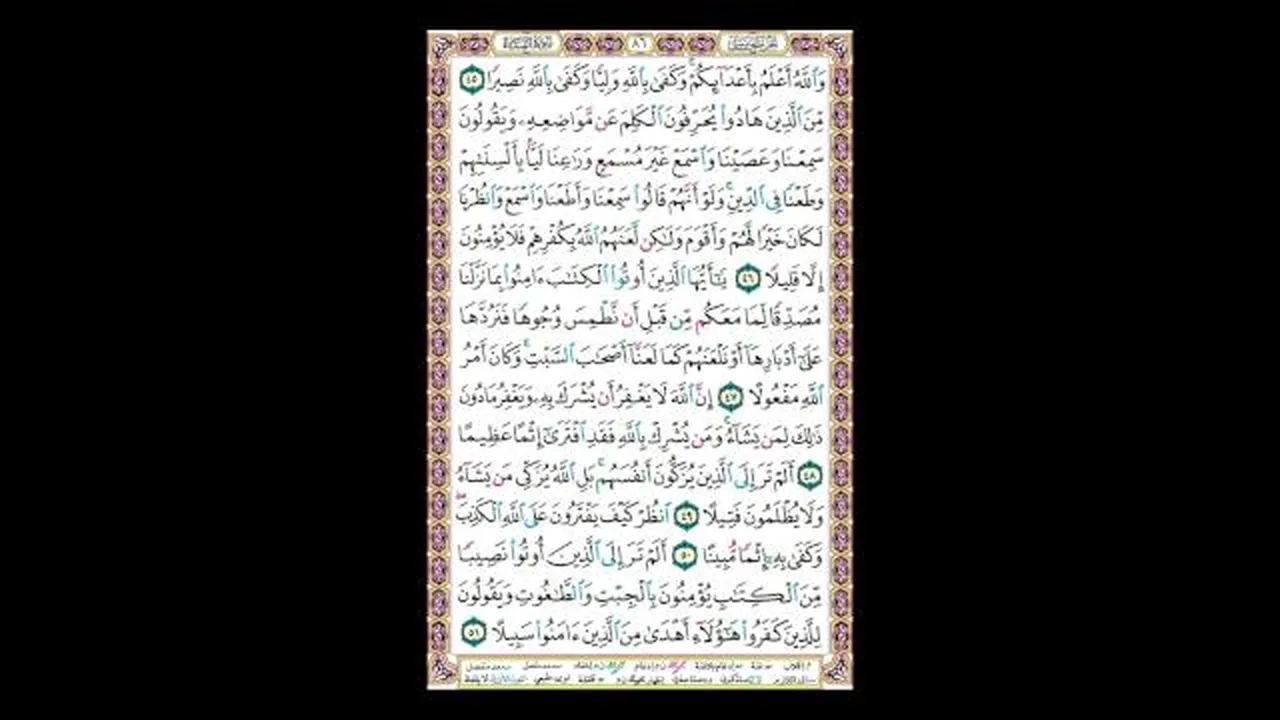 سورة النساء ٨٦ الجزء الخامس
وَٱللَّهُ أَعْلَمُ بِأَعْدَآئِكُمْ ۚ وَكَفَىٰ بِٱللَّهِ وَلِيًّا وَكَفَىٰ بِٱللَّهِ نَصِيرًا ٤٥
مِّنَ ٱلَّذِينَ هَادُوا۟ يُحَرِّفُونَ ٱلْكَلِمَ عَن مَّوَاضِعِهِۦ وَيَقُولُونَ
سَمِعْنَا وَعَصَيْنَا وَٱسْمَعْ غَيْرَ مُسْمَعٍ وَرَٰعِنَا لَيًّۢا بِأَلْسِنَتِهِمْ
وَطَعْنًا فِى ٱلدِّينِ ۚ وَلَوْ أَنَّهُمْ قَالُوا۟ سَمِعْنَا وَأَطَعْنَا وَٱسْمَعْ وَٱنظُرْنَا
لَكَانَ خَيْرًا لَّهُمْ وَأَقْوَمَ وَلَٰكِن لَّعَنَهُمُ ٱللَّهُ بِكُفْرِهِمْ فَلَا يُؤْمِنُونَ
إِلَّا قَلِيلًا ٤٦ يَٰٓأَيُّهَا ٱلَّذِينَ أُوتُوا۟ ٱلْكِتَٰبَ ءَامِنُوا۟ بِمَا نَزَّلْنَا
مُصَدِّقًا لِّمَا مَعَكُم مِّن قَبْلِ أَن نَّطْمِسَ وُجُوهًا فَنَرُدَّهَا
عَلَىٰٓ أَدْبَارِهَآ أَوْ نَلْعَنَهُمْ كَمَا لَعَنَّآ أَصْحَٰبَ ٱلسَّبْتِ ۚ وَكَانَ أَمْرُ
ٱللَّهِ مَفْعُولًا ٤٧ إِنَّ ٱللَّهَ لَا يَغْفِرُ أَن يُشْرَكَ بِهِۦ وَيَغْفِرُ مَا دُونَ
ذَٰلِكَ لِمَن يَشَآءُ ۚ وَمَن يُشْرِكْ بِٱللَّهِ فَقَدِ ٱفْتَرَىٰٓ إِثْمًا عَظِيمًا
٤٨ أَلَمْ تَرَ إِلَى ٱلَّذِينَ يُزَكُّونَ أَنفُسَهُم ۚ بَلِ ٱللَّهُ يُزَكِّى مَن يَشَآءُ
وَلَا يُظْلَمُونَ فَتِيلًا ٤٩ ٱنظُرْ كَيْفَ يَفْتَرُونَ عَلَى ٱللَّهِ ٱلْكَذِبَ ۖ
وَكَفَىٰ بِهِۦٓ إِثْمًا مُّبِينًا ٥٠ أَلَمْ تَرَ إِلَى ٱلَّذِينَ أُوتُوا۟ نَصِيبًا
مِّنَ ٱلْكِتَٰبِ يُؤْمِنُونَ بِٱلْجِبْتِ وَٱلطَّٰغُوتِ وَيَقُولُونَ
لِلَّذِينَ كَفَرُوا۟ هَٰٓؤُلَآءِ أَهْدَىٰ مِنَ ٱلَّذِينَ ءَامَنُوا۟ سَبِيلًا ٥١